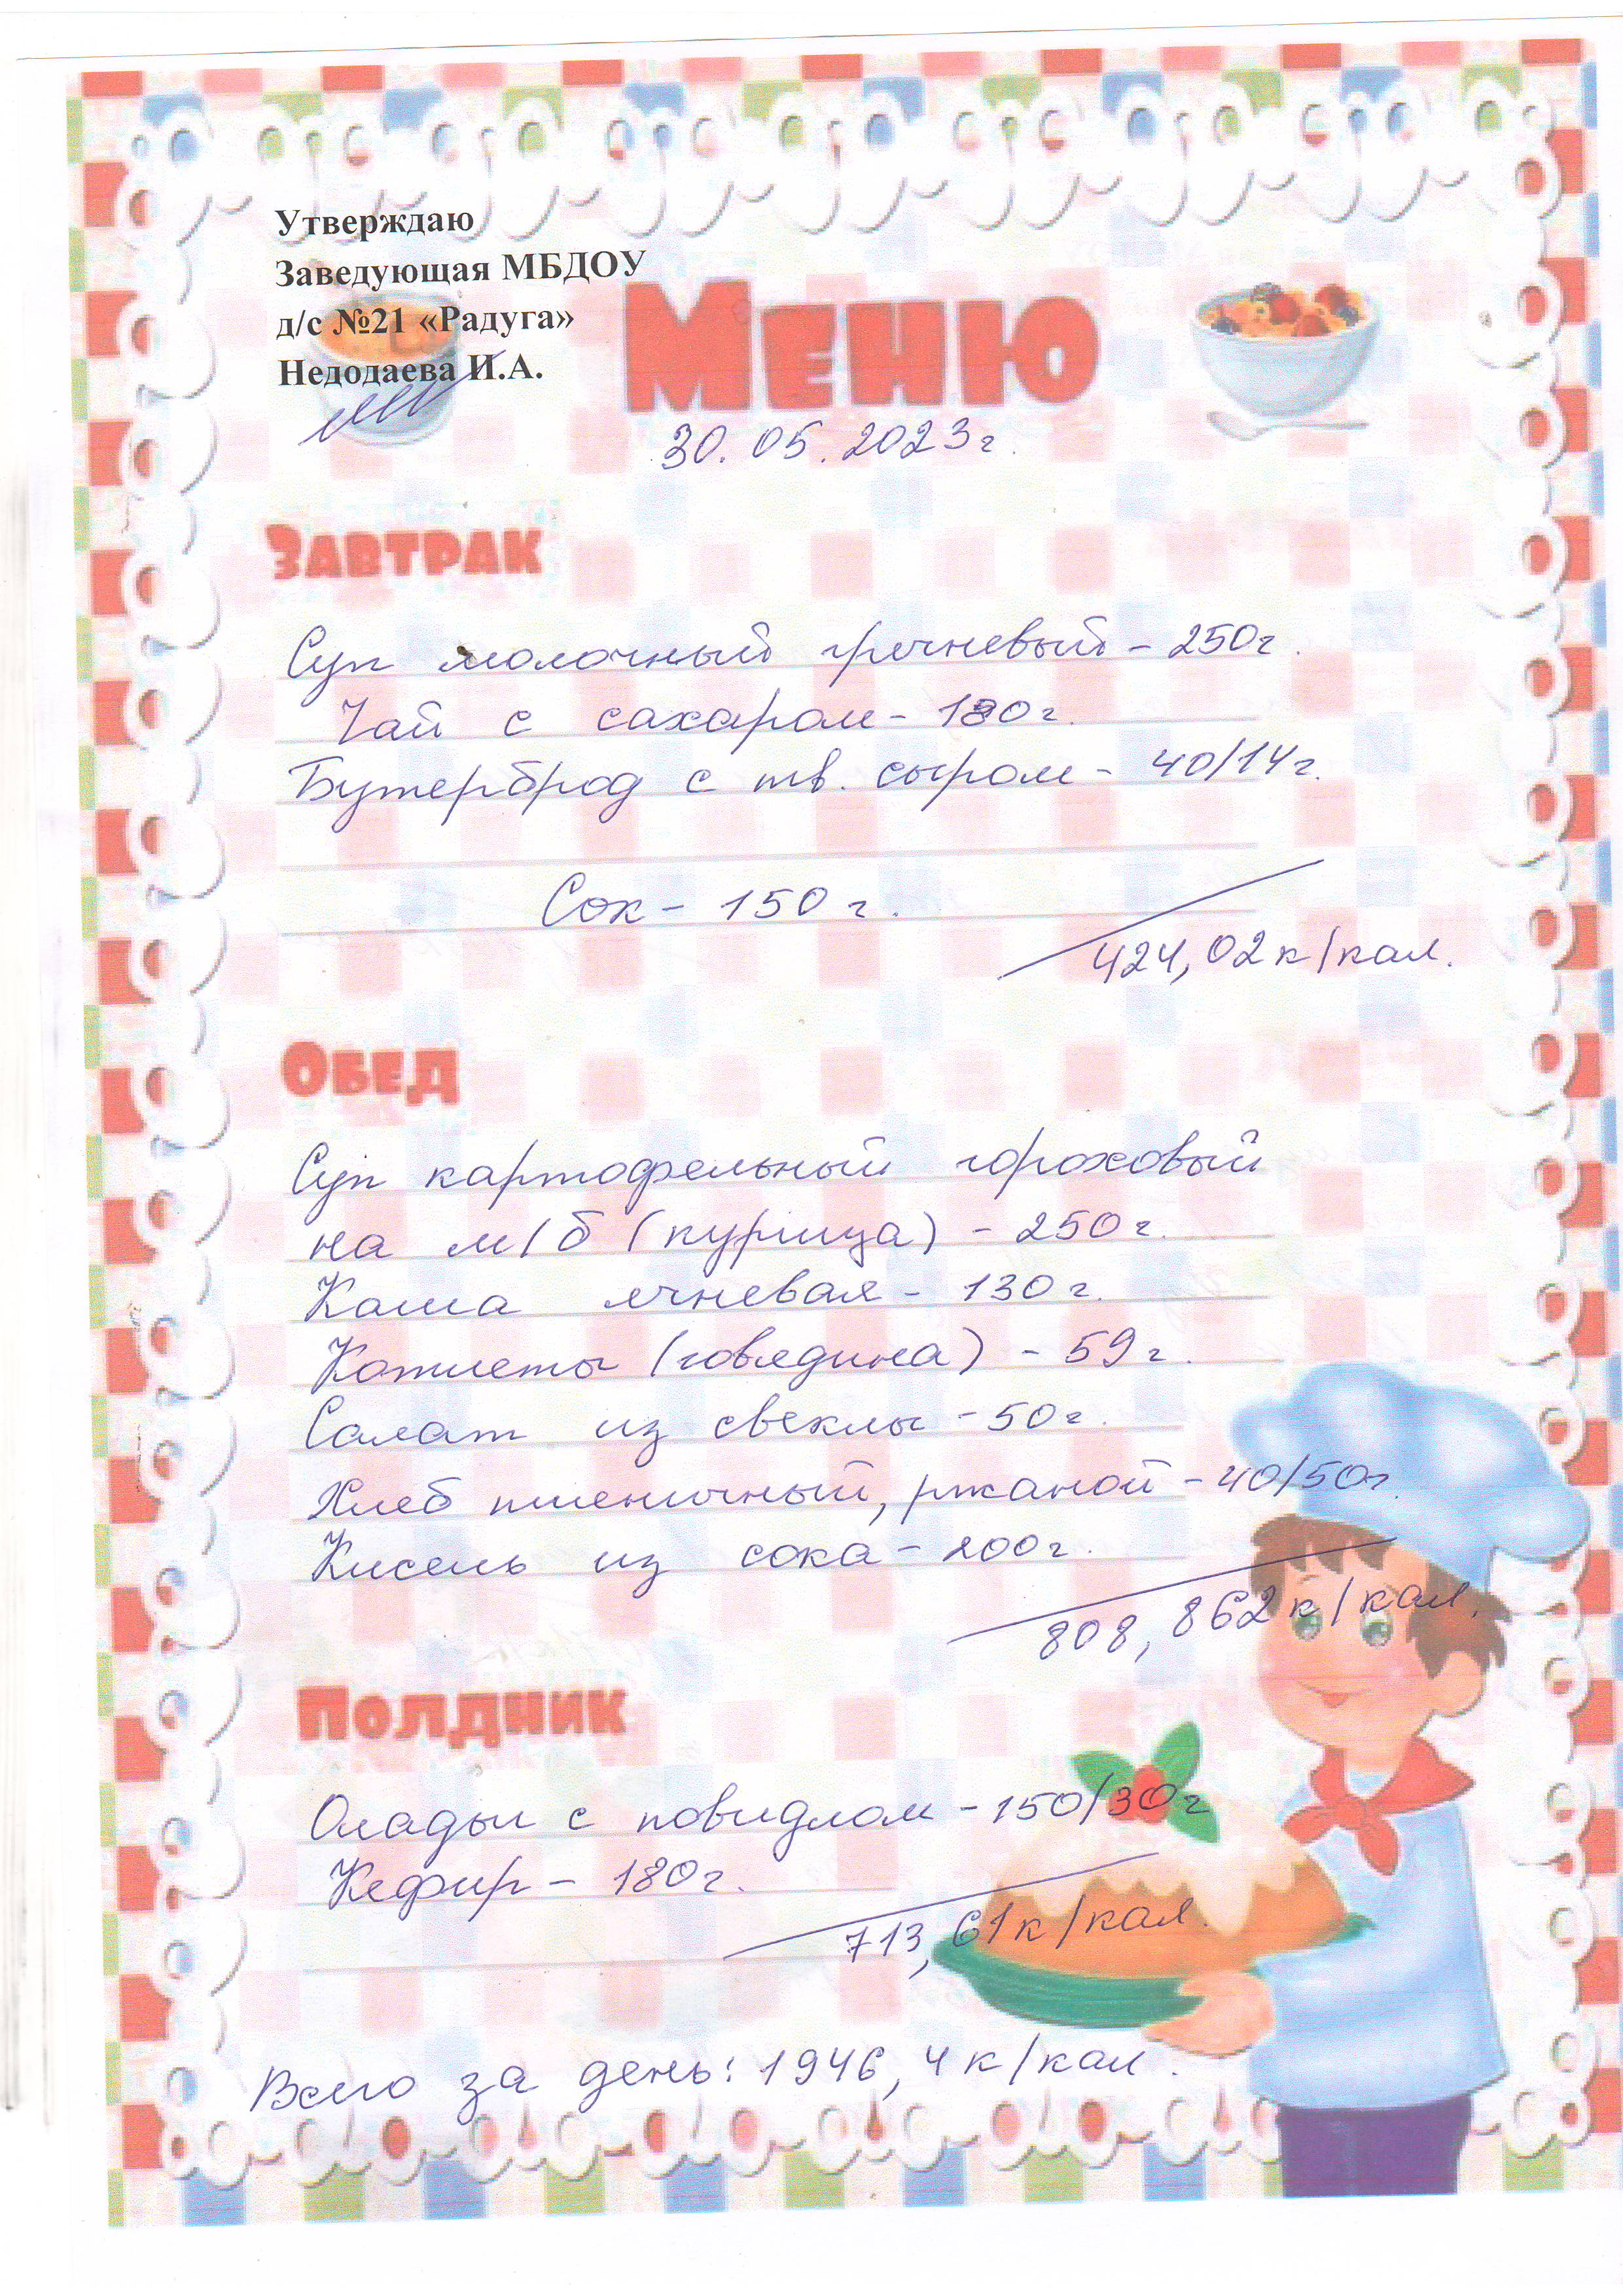 Утверждаю
Заведующая МБДОУ
д/с №21 «Радуга»
Недодаева И.А.
Меню
30.05.2023г.
Завтрак
Суп молочный гречневый - 250г.
Чай с сахаром - 180г.
Бутерброд с тв. сыром - 40/14г.
Сок - 150г.
424,02к/кал.
Обед
Суп картофельный гороховый
на м/б (курица) - 250г.
Каша ячневая - 130г.
Котлеты (говядина) - 59г.
Салат из свеклы - 50г.
Хлеб пшеничный, ржаной - 40/50г.
Кисель из сока - 200г.
808,862к/кал.
Полдник
Оладьи с повидлом - 150/30г
Кефир - 180г.
713,61к/кал.
Всего за день: 1946,4к/кал.